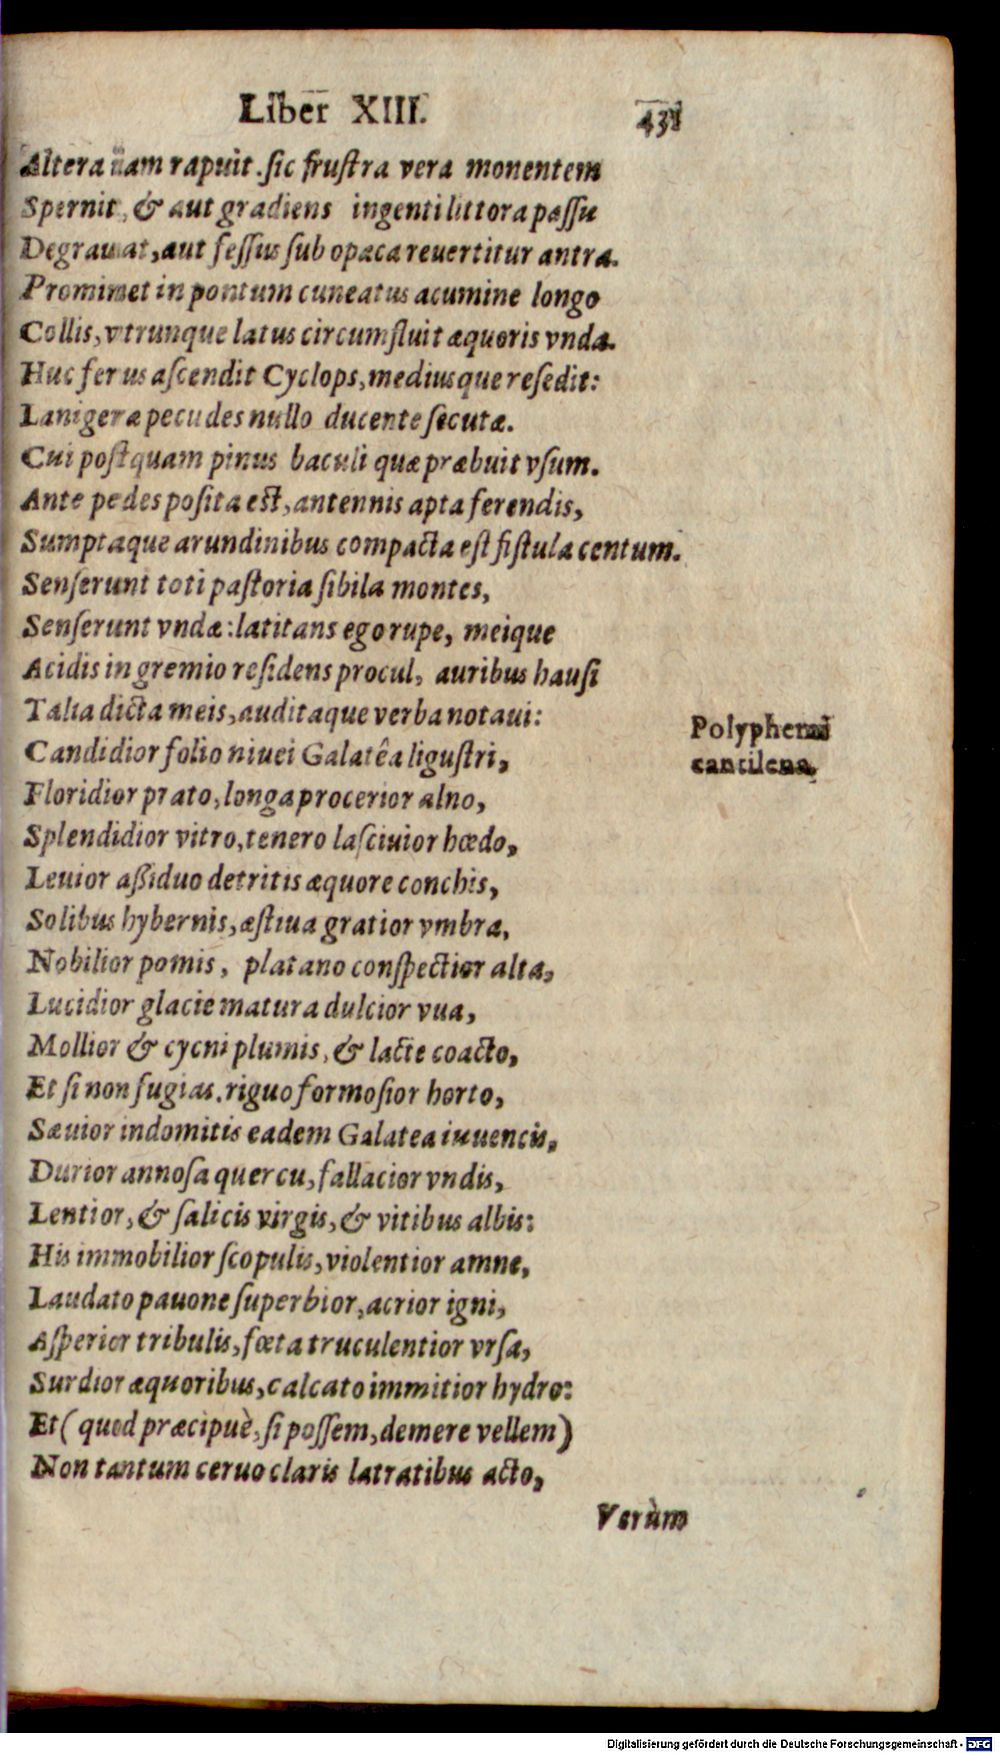 Liber XIII. 431
Altera iam rapuit. sic frustra vera monentem
Spernit, & aut gradiens ingenti littora passu
Degrauat, aut fessus sub opaca reuertitur antra.
Prominet in pontum cuneatus acumine longo
Collis, vtrunque latus circumfluit æquoris vnda.
Huc ferus ascendit Cyclops, mediusque resedit:
Lanigeræ pecudes nullo ducente secutæ.
Cui postquam pinus baculi quæ præbuit vsum.
Ante pedes posita est, antennis apta ferendis,
Sumptaque arundinibus compacta est fistula centum.
Senserunt toti pastoria sibila montes,
Senserunt vndæ: latitans ego rupe, meique
Acidis in gremio residens procul, auribus hausi
Talia dicta meis, auditaque verba notaui:
Candidior folio niuei Galatêa ligustri,
Polyphemi
cantilena.
Floridior prato, longa procerior alno,
Splendidior vitro, tenero lasciuior hœdo,
Leuior assiduo detritis æquore conchis,
Solibus hybernis, æstiua gratior vmbra,
Nobilior pomis, platano conspectior alta,
Lucidior glacie matura dulcior vua,
Mollior & cycni plumis, & lacte coacto,
Et si non fugias. riguo formosior horto,
Sæuior indomitis eadem Galatea iuuencis,
Durior annosa quercu, fallacior vndis,
Lentior, & salicis virgis, & vitibus albis:
His immobilior scopulis, violentior amne,
Laudato pauone superbior, acrior igni,
Asperior tribulis, fœta truculentior vrsa,
Surdior æquoribus, calcato immitior hydro:
Et (quod præcipuè, si possem, demere vellem)
Non tantum ceruo claris latratibus acto,
Verùm
Digitalisierung gefördert durch die Deutsche Forschungsgemeinschaft - DFG